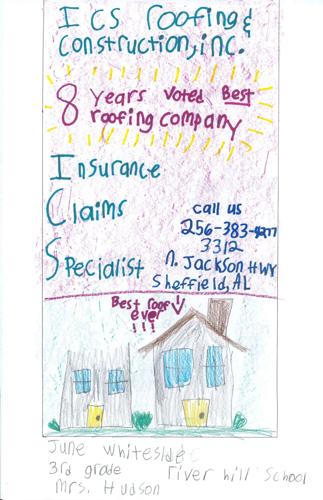 ICS roofing &
construction, inc.
8 years voted Best
roofing company
Insurance
Claims
Specialist
call us
256-383-
3312
n. Jackson HWY
Sheffield, AL
Best roof
ever
!!!
June Whiteside
3rd grade River hill School
Mrs. Hudson